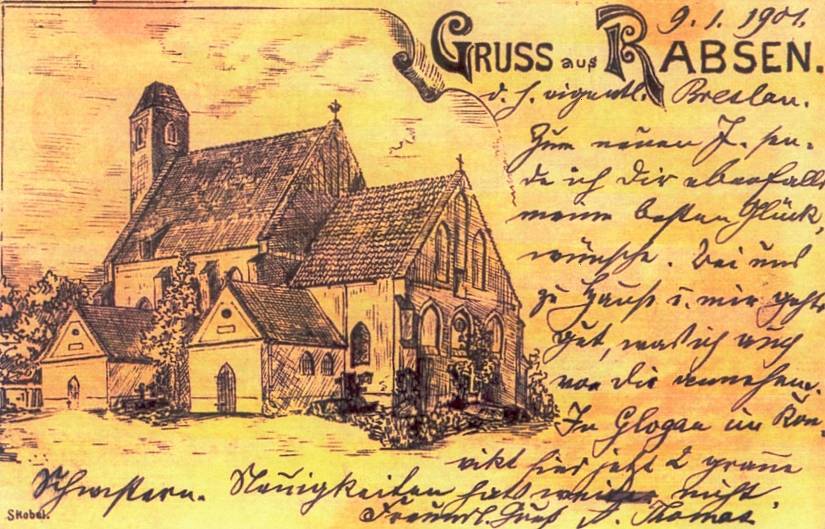 9.1.1901.
GRUSS aus RABSEN.
d. h. eigentl. Breslau.
Zum neuen J. sen-
de ich Dir ebenfalls
meine besten Glück-
wünsche. Bei uns
zu Hause u. mir gehts
gut, was ich auch
von Dir annehme.
In Glogau im Kon-
vikt sind jetzt 2 graue
Schwestern. Neuigkeiten hats weiter nicht
Freundl. Gruß Thomas
Skobel.